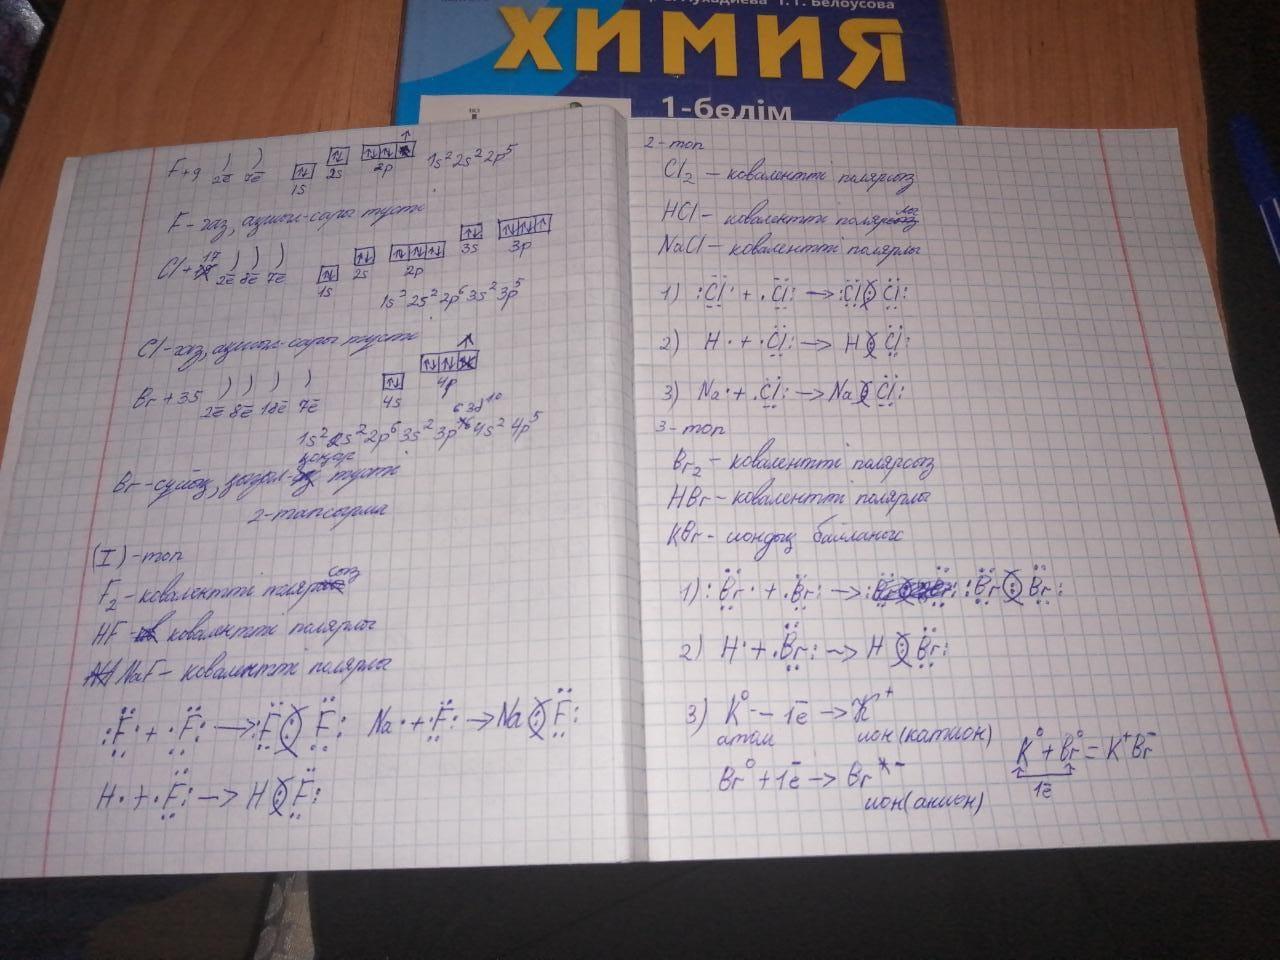 Т.Г. Белоусова
ХИМИЯ
1-бөлім
F+9 ) ) 2ē 7ē 1s 2s 2p 1s² 2s² 2p⁵
F-газ, ашық-сары түсті
Cl+17 ) ) ) 2ē 8ē 7ē 1s 2s 2p 3s 3p
1s² 2s² 2p⁶ 3s² 3p⁵
Cl-газ, ашық-сары түсті
Br+35 ) ) ) ) 2ē 8ē 18ē 7ē 4s 4p
1s² 2s² 2p⁶ 3s² 3p⁶ 3d¹⁰ 4s² 4p⁵
Br-сұйық, қызыл-қоңыр түсті
2-тапсырма
(I)-топ
F₂-ковалентті полярсыз
HF- ковалентті полярлы
NaF-ковалентті полярлы
:F· + ·F: → :F(:)F: Na· + ·F: → Na(:)F:
H· + ·F: → H(:)F:
2-топ
Cl₂ – ковалентті полярсыз
HCl – ковалентті полярлы
NaCl – ковалентті полярлы
1) :Cl· + ·Cl: → :Cl(:)Cl:
2) H· + ·Cl: → H(:)Cl:
3) Na· + ·Cl: → Na(:)Cl:
3-топ
Br₂ – ковалентті полярсыз
HBr – ковалентті полярлы
KBr – иондық байланыс
1) :Br· + ·Br: → :Br(:)Br:
2) H· + ·Br: → H(:)Br:
3) K⁰ – 1ē → K⁺
атом ион(катион)
K⁰ + Br⁰ = K⁺Br⁻
1ē
Br⁰ + 1ē → Br⁻
ион(анион)